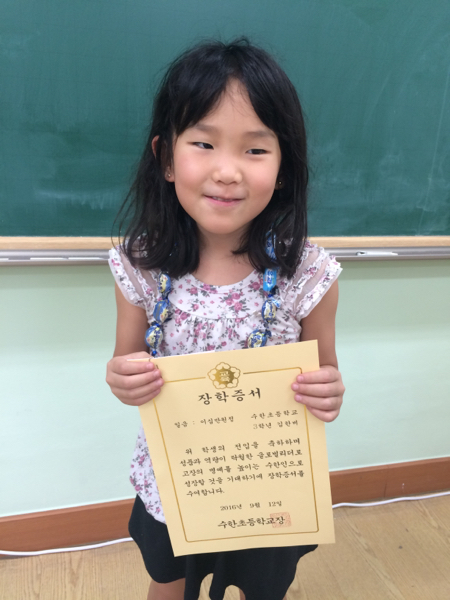 장학증서
일금 : 이십만원정 수한초등학교
3학년
위 학생의 전입을 축하하며
성품과 역량이 탁월한 글로벌리더로
고장의 명예를 높이는 수한인으로
성장할 것을 기대하기에 장학증서를
수여합니다.
2016년 9월 12일
수한초등학교장